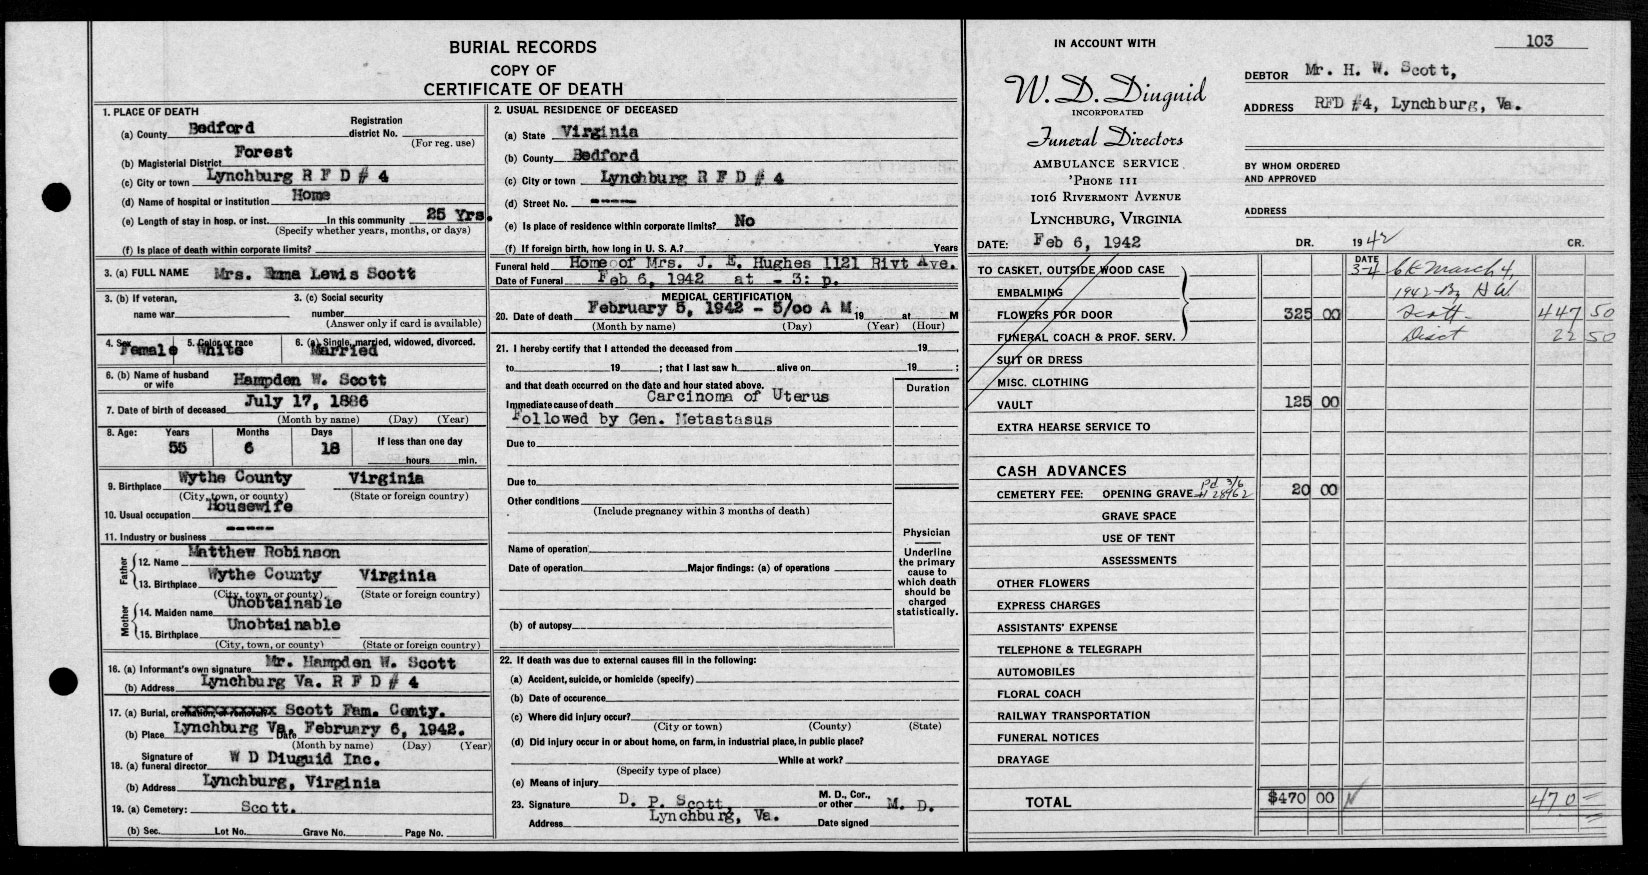 BURIAL RECORDS
COPY OF
CERTIFICATE OF DEATH
1. PLACE OF DEATH
(a) County Bedford Registration district No.
(For reg. use)
(b) Magisterial District Forest
(c) City or town Lynchburg R F D # 4
(d) Name of hospital or institution Home
(e) Length of stay in hosp. or inst. In this community 25 Yrs.
(Specify whether years, months, or days)
(f) Is place of death within corporate limits?
3. (a) FULL NAME Mrs. Emma Lewis Scott
3. (b) If veteran, name war 3. (c) Social security number
(Answer only if card is available)
4. Sex Female 5. Color or race White 6. (a) Single, married, widowed, divorced. Married
6. (b) Name of husband or wife Hampden W. Scott
7. Date of birth of deceased July 17, 1886
(Month by name) (Day) (Year)
8. Age: Years Months Days If less than one day
55 6 18 hours min.
9. Birthplace Wythe County Virginia
(City, town, or county) (State or foreign country)
10. Usual occupation Housewife
11. Industry or business -----
Father
12. Name Matthew Robinson
13. Birthplace Wythe County Virginia
(City, town, or county) (State or foreign country)
Mother
14. Maiden name Unobtainable
15. Birthplace Unobtainable
(City, town, or county) (State or foreign country)
16. (a) Informant's own signature Mr. Hampden W. Scott
(b) Address Lynchburg Va. R F D # 4
17. (a) Burial, cremation, or removal xxxxxxxxxxx Scott Fam. Cemty.
(b) Place Lynchburg Va. Date February 6, 1942.
(Month by name) (Day) (Year)
18. (a) Signature of funeral director W D Diuguid Inc.
(b) Address Lynchburg, Virginia
19. (a) Cemetery: Scott.
(b) Sec. Lot No. Grave No. Page No.
2. USUAL RESIDENCE OF DECEASED
(a) State Virginia
(b) County Bedford
(c) City or town Lynchburg R F D # 4
(d) Street No. -----
(e) Is place of residence within corporate limits? No
(f) If foreign birth, how long in U. S. A.? Years
Funeral held Home of Mrs. J. E. Hughes 1121 Rivt Ave.
Date of Funeral Feb 6, 1942 at - 3: p.
MEDICAL CERTIFICATION
20. Date of death February 5, 1942 - 5/oo A M 19 at M
(Month by name) (Day) (Year) (Hour)
21. I hereby certify that I attended the deceased from 19 ,
to 19 ; that I last saw h alive on 19 ;
and that death occurred on the date and hour stated above. Duration
Immediate cause of death Carcinoma of Uterus
Followed by Gen. Metastasus
Due to
Due to
Other conditions
(Include pregnancy within 3 months of death)
Name of operation
Date of operation Major findings: (a) of operations
(b) of autopsy
Physician
Underline the primary cause to which death should be charged statistically.
22. If death was due to external causes fill in the following:
(a) Accident, suicide, or homicide (specify)
(b) Date of occurence
(c) Where did injury occur?
(City or town) (County) (State)
(d) Did injury occur in or about home, on farm, in industrial place, in public place?
While at work?
(Specify type of place)
(e) Means of injury
23. Signature D. P. Scott, M. D., Cor., or other M. D.
Address Lynchburg, Va. Date signed
IN ACCOUNT WITH
W. D. Diuguid
INCORPORATED
Funeral Directors
AMBULANCE SERVICE
'PHONE 111
1016 RIVERMONT AVENUE
LYNCHBURG, VIRGINIA
103
DEBTOR Mr. H. W. Scott,
ADDRESS RFD #4, Lynchburg, Va.
BY WHOM ORDERED AND APPROVED
ADDRESS
DATE: Feb 6, 1942 DR. 1942 CR.
TO CASKET, OUTSIDE WOOD CASE DATE 3-4 ck March 4,
EMBALMING 1942 By H W
FLOWERS FOR DOOR 325 00 Scott 447 50
FUNERAL COACH & PROF. SERV. Disct 22 50
SUIT OR DRESS
MISC. CLOTHING
VAULT 125 00
EXTRA HEARSE SERVICE TO
CASH ADVANCES
CEMETERY FEE: OPENING GRAVE Pd 3/6 # 28962 20 00
GRAVE SPACE
USE OF TENT
ASSESSMENTS
OTHER FLOWERS
EXPRESS CHARGES
ASSISTANTS' EXPENSE
TELEPHONE & TELEGRAPH
AUTOMOBILES
FLORAL COACH
RAILWAY TRANSPORTATION
FUNERAL NOTICES
DRAYAGE
TOTAL $470 00 470 =